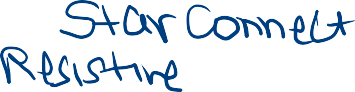 Star Connect
Resistive